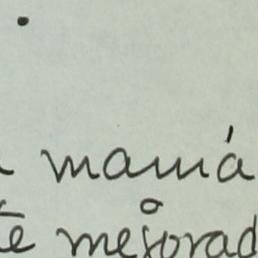 mamá
mejorad